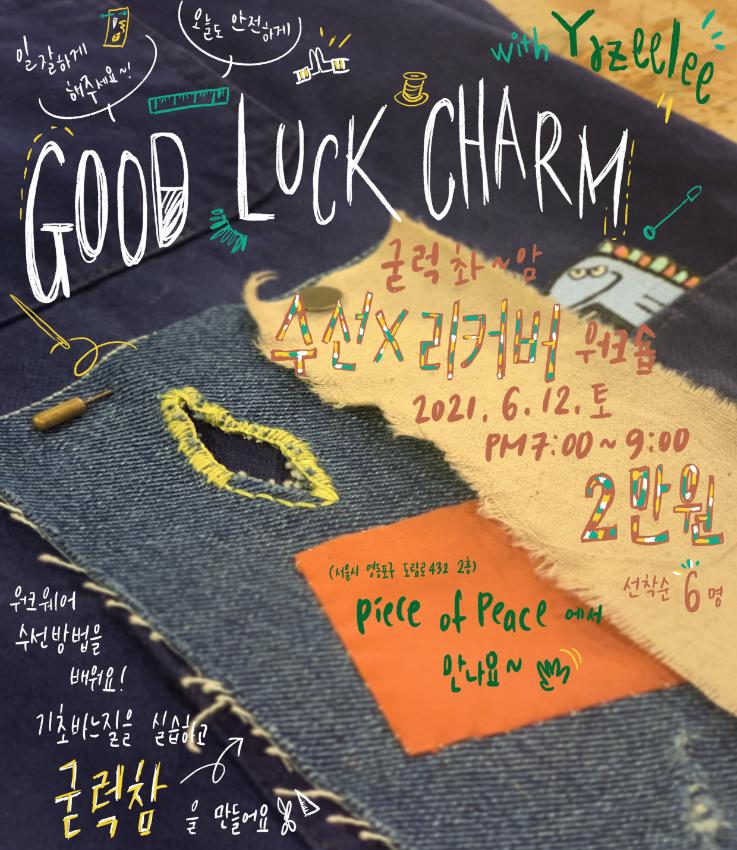 일 잘하게
해주세요~!
오늘도 안전하게
with Yazeelee
GOOD LUCK CHARM
굳럭 촤~암
수선X리커버 워크숍
2021. 6. 12. 토
PM 7:00 ~ 9:00
2만원
선착순 6명
(서울시 영등포구 도림로 432 2층)
piece of Peace 에서
만나요~
워크웨어
수선방법을
배워요!
기초바느질을 실습하고
굳럭참
을 만들어요